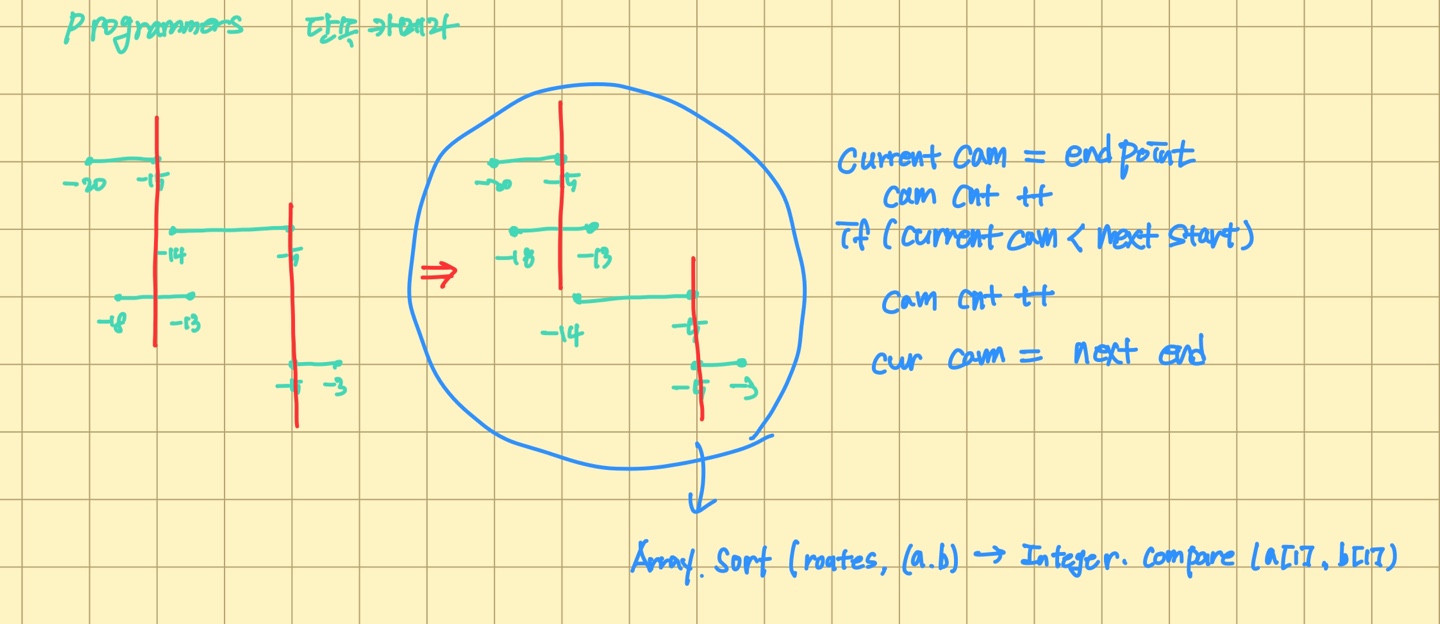 Programmers 단속카메라
-20 -15
-14 -5
-18 -13
-5 -3
⇒
-20 -15
-18 -13
-14 -5
-5 -3
current cam = end point
cam cnt ++
if (current cam < next start)
cam cnt ++
cur cam = next end
Array. sort (routes, (a.b) → Integer. compare (a[1], b[1])